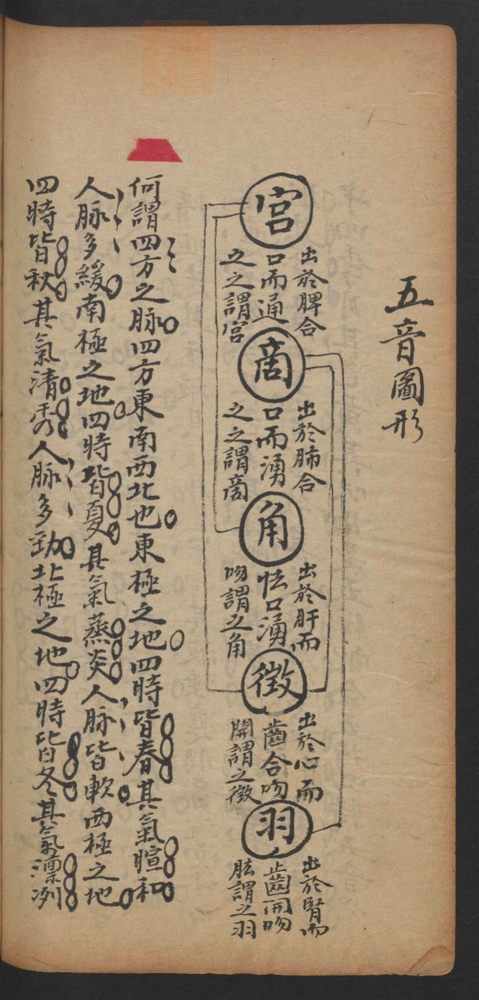 五音圖形
宮
出於脾合
口而通
之之謂宮
商
出於肺合
口而湧
之之謂商
角
出於肝而
怯口湧
吻謂之角
徵
出於心而
齒合吻
開謂之徵
羽
出於腎而
齒開吻
肱謂之羽
何謂四方之脉四方東南西北也東極之地四時皆春其氣暄和
人脉多緩南極之地四時皆夏其氣蒸炎人脉皆軟西極之地
四時皆秋其氣清秀人脉多劲北極之地四時皆冬其氣凛冽